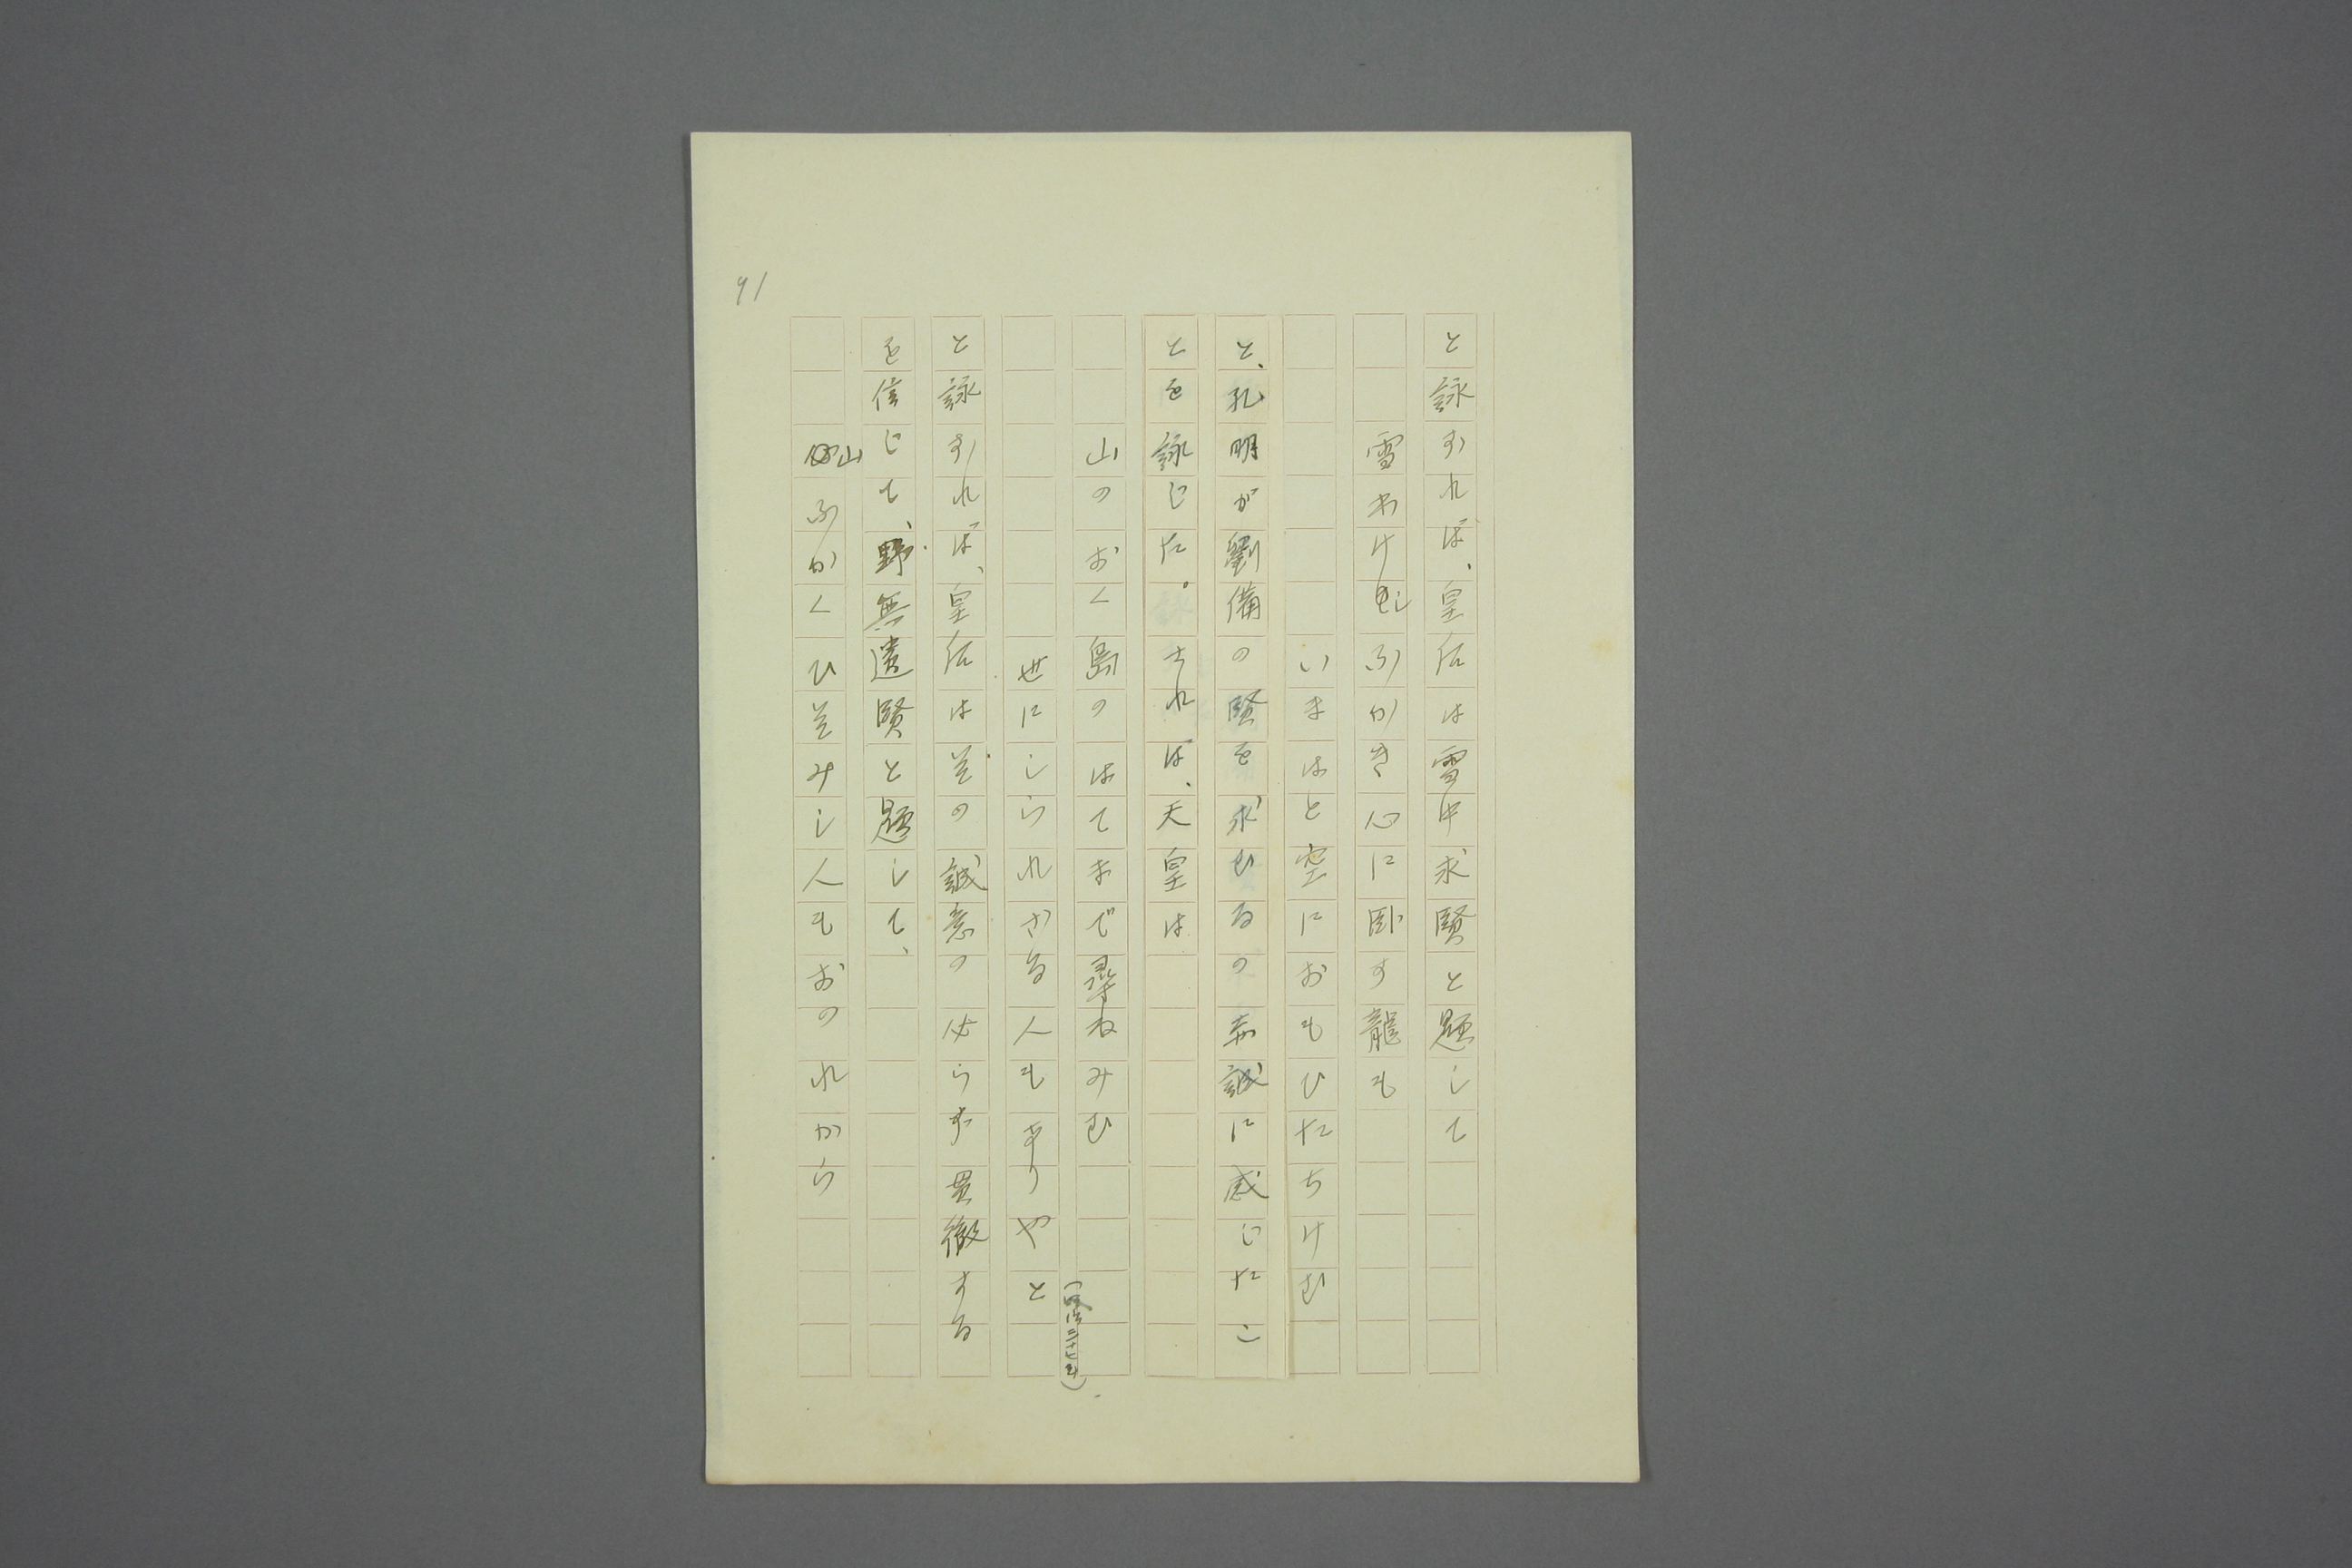 91
と詠ずれば、皇后は雪中求賢と題して
雪わけしふかき心に臥す龍も
いまはと空におもひたちけむ
と、孔明が劉備の賢を求むるの赤誠に感じたこ
とを詠じた。されば、天皇は
山のおく島のはてまで尋ねみむ
世にしられざる人もありやと
(明治三十七年)
と詠ずれば、皇后は其の誠意の必らず貫徹する
を信じて、野無遺賢と題して、
山ふかくひそみし人もおのれから